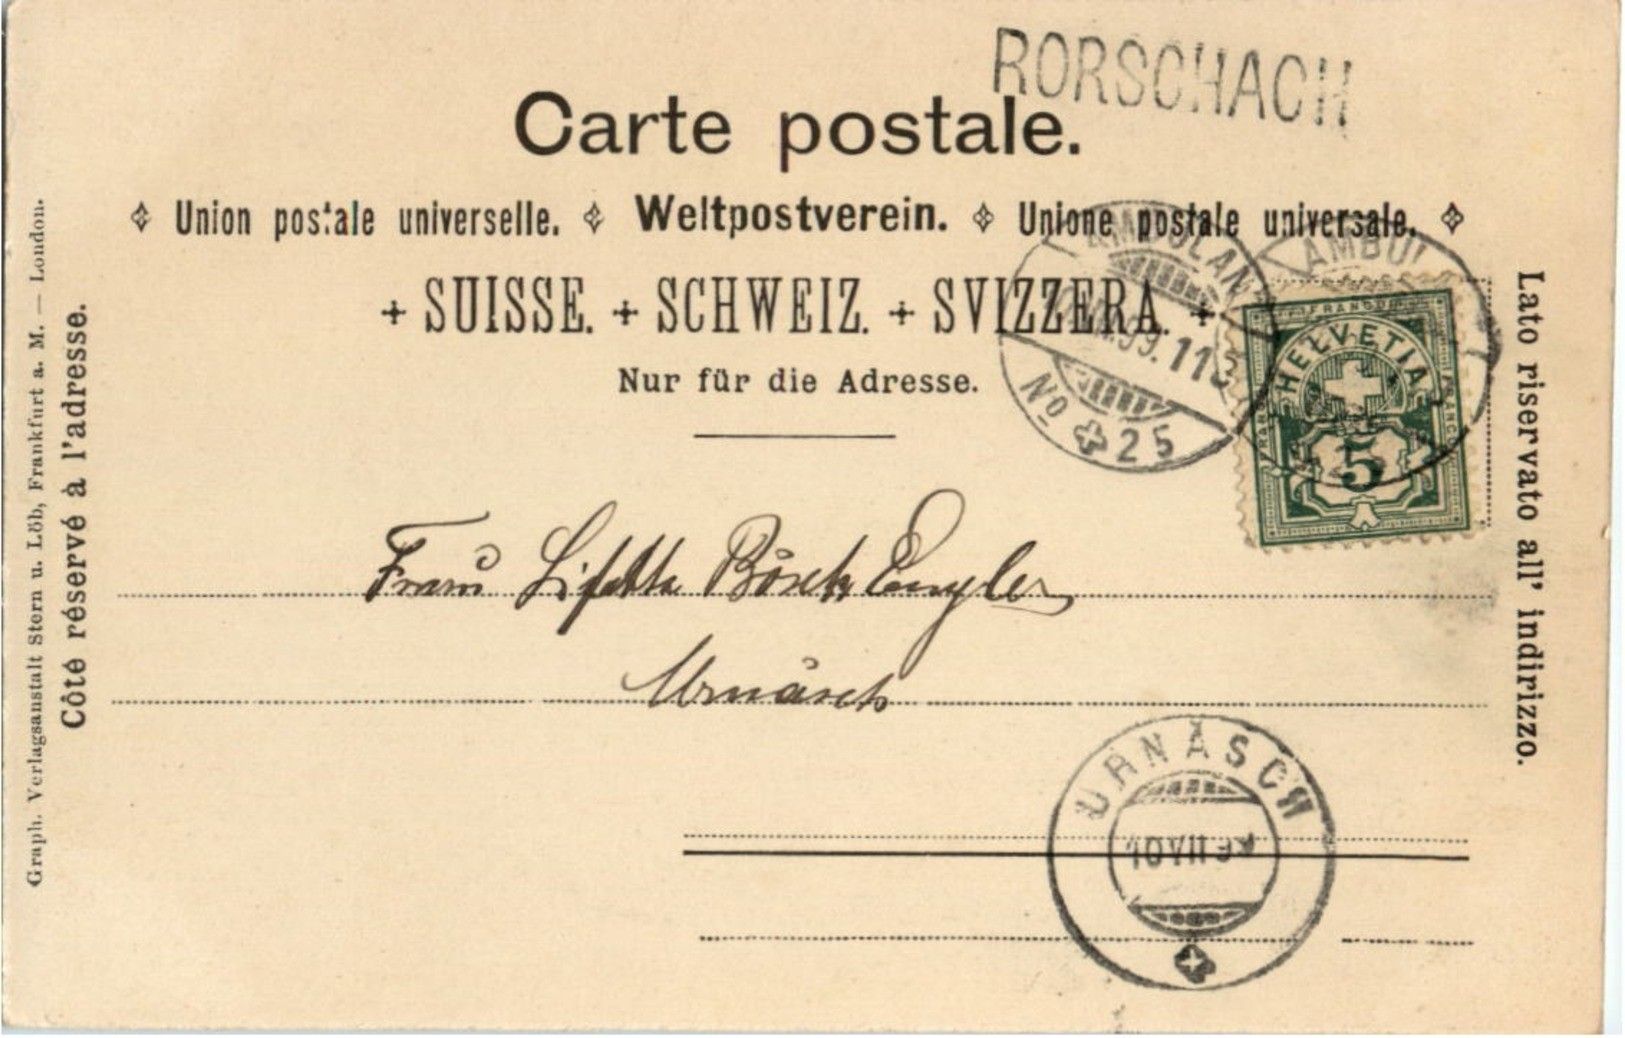 RORSCHACH
Carte postale.
Union postale universelle. Weltpostverein. Unione postale universale.
+ SUISSE. + SCHWEIZ. + SVIZZERA. +
Nur für die Adresse.
AMBULAN
99. 11
No 25
AMBUL
FRANCO
HELVETIA
FRANCO
FRANCO
5
Frau Lisetta Bösch Engler
Urnäsch
URNÄSCH
10 VII
Côté réservé à l'adresse.
Graph. Verlagsanstalt Stern u. Löb, Frankfurt a. M. — London.
Lato riservato all' indirizzo.